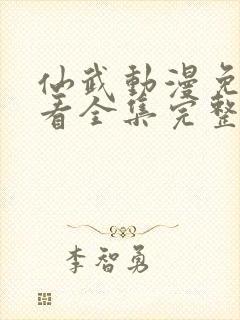 仙武動漫免
看全集完整
李智勇